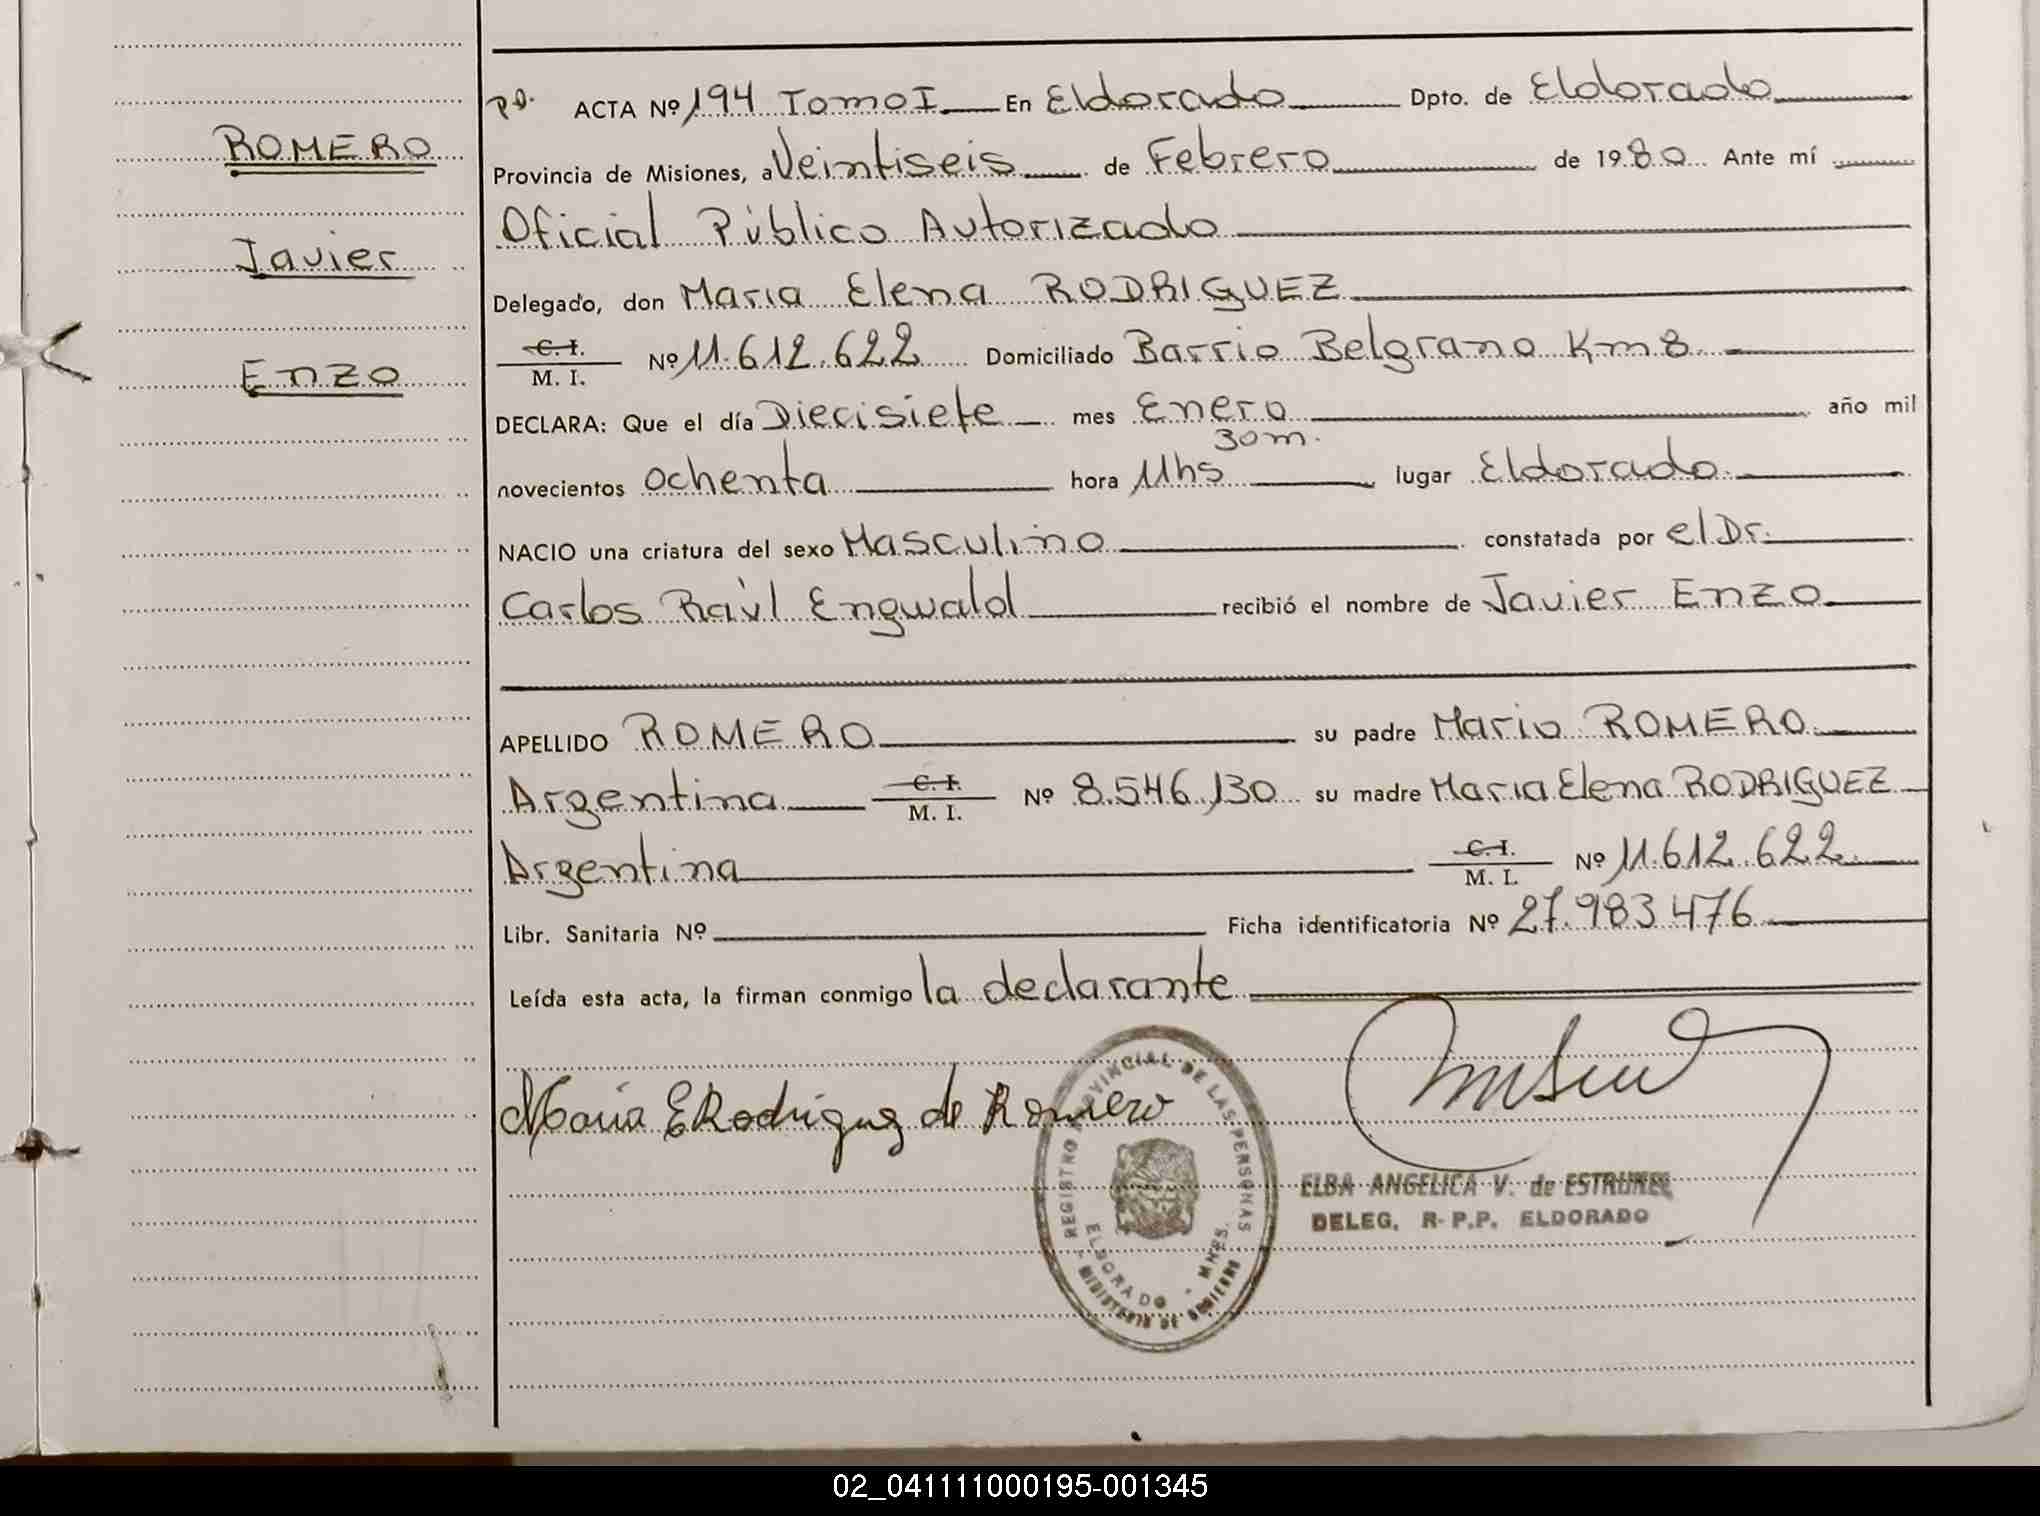 ROMERO
Javier
Enzo
P.D. ACTA Nº 194 Tomo I En Eldorado Dpto. de Eldorado
Provincia de Misiones, a Veintiseis de Febrero de 1980 Ante mí
Oficial Público Autorizado
Delegado, don Maria Elena RODRIGUEZ
C. I.
M. I. Nº 11.612.622 Domiciliado Barrio Belgrano Km 8
DECLARA: Que el día Diecisiete mes Enero año mil
novecientos ochenta hora 11hs 30m. lugar Eldorado
NACIO una criatura del sexo Masculino constatada por el Dr.
Carlos Raúl Engwald recibió el nombre de Javier Enzo
APELLIDO ROMERO su padre Mario ROMERO
Argentina C. I. M. I. Nº 8.546.130 su madre Maria Elena RODRIGUEZ
Argentina C. I. M. I. Nº 11.612.622
Libr. Sanitaria Nº Ficha identificatoria Nº 27.983.476
Leída esta acta, la firman conmigo la declarante
Maria E Rodriguez de Romero
REGISTRO PROVINCIAL DE LAS PERSONAS
ELDORADO - MNES.
MINISTERIO DE GOBIERNO
ELBA ANGELICA V. de ESTRUKEL
DELEG. R-P.P. ELDORADO
02_041111000195-001345